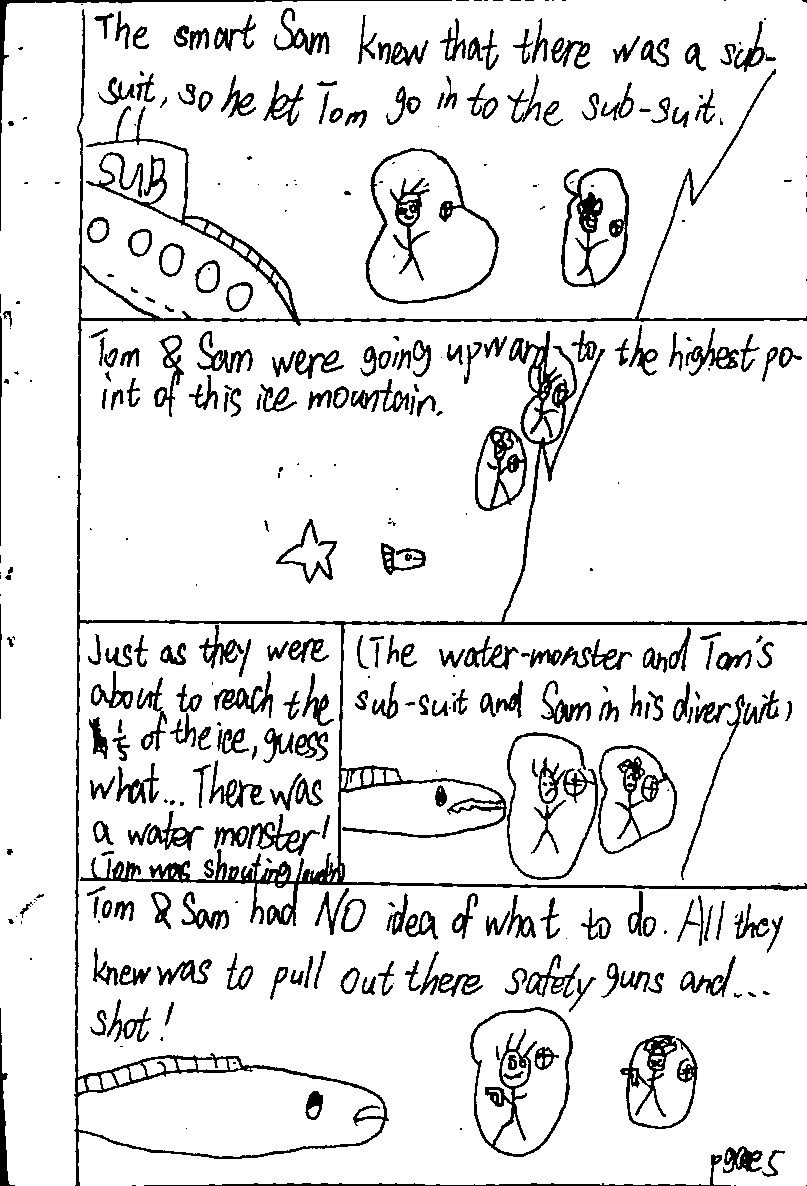 The smart Sam knew that there was a sub-
suit, so he let Tom go in to the sub-suit.
SUB
Tom & Sam were going upward to the highest po-
int of this ice mountain.
Just as they were
about to reach the
1/5 of the ice, guess
what... There was
a water monster!
(Tom was shouting loudly)
(The water-monster and Tom's
sub-suit and Sam in his diver suit)
Tom & Sam had NO idea of what to do. All they
knew was to pull out there safety guns and...
shot!
pgae 5